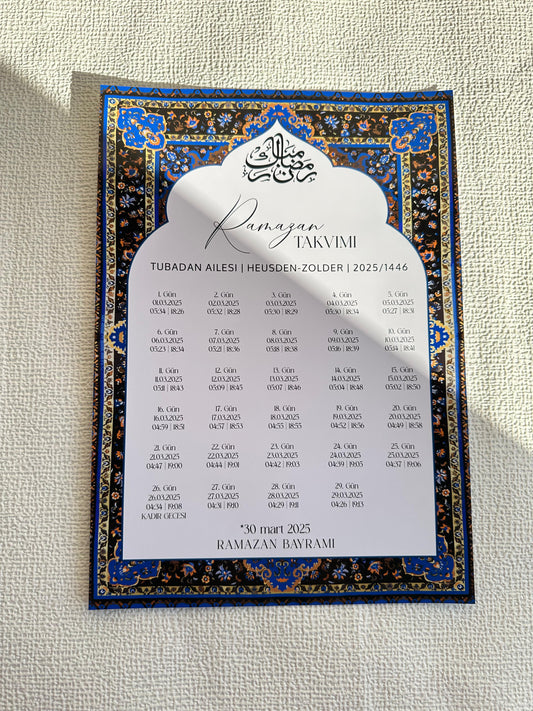 رمضان مبارك
Ramazan
TAKVIMI
TUBADAN AILESI | HEUSDEN-ZOLDER | 2025/1446
1. Gün 2. Gün 3. Gün 4. Gün 5. Gün
01.03.2025 02.03.2025 03.03.2025 04.03.2025 05.03.2025
05:34 | 18:26 05:32 | 18:28 05:30 | 18:29 05:30 | 18:34 05:27 | 18:31
6. Gün 7. Gün 8. Gün 9. Gün 10. Gün
06.03.2025 07.03.2025 08.03.2025 09.03.2025 10.03.2025
05:23 | 18:34 05:21 | 18:36 05:18 | 18:38 05:16 | 18:39 05:14 | 18:41
11. Gün 12. Gün 13. Gün 14. Gün 15. Gün
11.03.2025 12.03.2025 13.03.2025 14.03.2025 15.03.2025
05:11 | 18:43 05:09 | 18:45 05:07 | 18:46 05:04 | 18:48 05:02 | 18:50
16. Gün 17. Gün 18. Gün 19. Gün 20. Gün
16.03.2025 17.03.2025 18.03.2025 19.03.2025 20.03.2025
04:59 | 18:51 04:57 | 18:53 04:55 | 18:55 04:52 | 18:56 04:49 | 18:58
21. Gün 22. Gün 23. Gün 24. Gün 25. Gün
21.03.2025 22.03.2025 23.03.2025 24.03.2025 25.03.2025
04:47 | 19:00 04:44 | 19:01 04:42 | 19:03 04:39 | 19:05 04:37 | 19:06
26. Gün 27. Gün 28. Gün 29. Gün
26.03.2025 27.03.2025 28.03.2025 29.03.2025
04:34 | 19:08 04:31 | 19:10 04:29 | 19:11 04:26 | 19:13
KADIR GECESI
*30 mart 2025
RAMAZAN BAYRAMI